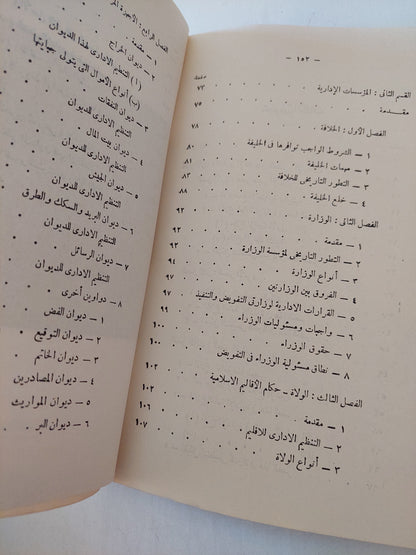 — ١٥٢ —
صفحة
القسم الثانى : المؤسسات الإدارية . . . ٧٣
مقدمة . . . ٧٥
الفصل الأول : الخلافة . . . ٧٨
١ — الشروط الواجب توافرها فى الخليفة . . . ٨٠
٢ — مهمات الخليفة . . . ٨٢
٣ — التطور التاريخى للخلافة . . . ٨٣
٤ — خلع الخليفة . . . ٨٨
الفصل الثانى : الوزارة . . . ٩٢
١ — مقدمة . . . ٩٢
٢ — التطور التاريخى لمؤسسة الوزارة . . . ٩٣
٣ — أنواع الوزارة . . . ٩٤
٤ — الفروق بين الوزارتين . . . ٩٧
٥ — القرارات الادارية لوزارتى التفويض والتنفيذ . . . ٩٧
٦ — واجبات ومسئوليات الوزراء . . . ٩٩
٧ — حقوق الوزراء . . . ١٠٠
٨ — نطاق مسئولية الوزراء فى التفويض . . . ١٠٠
الفصل الثالث : الولاة — حكام الأقاليم الاسلامية . . . ١٠٢
١ — مقدمة . . . ١٠٢
٢ — التنظيم الادارى للاقليم . . . ١٠٦
٣ — أنواع الولاة . . . ١٠٧
الفصل الرابع : الأجهزة
١ — مقدمة . . .
٢ — ديوان الخراج . . .
(١) التنظيم الادارى لهذا الديوان
(ب) أنواع الاموال التى يتولى جبايتها
٣ — ديوان النفقات . . .
التنظيم الادارى للديوان
٤ — ديوان بيت المال . . .
التنظيم الادارى للديوان
٥ — ديوان الجيش . . .
التنظيم الادارى للديوان
٦ — ديوان البريد والسكك والطرق
التنظيم الادارى للديوان
٧ — ديوان الرسائل . . .
التنظيم الادارى للديوان
٨ — دواوين أخرى . . .
١ — ديوان الفض . . .
٢ — ديوان التوقيع . . .
٣ — ديوان الخاتم . . .
٤ — ديوان المصادرين
٥ — ديوان المواريث
٦ — ديوان البر . . .